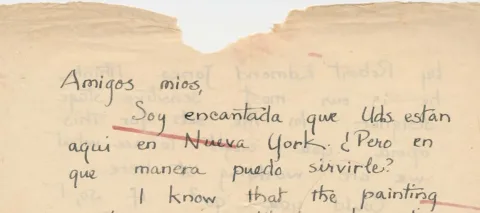 Amigos mios,
Soy encantada que Uds están
aqui en Nueva York. ¿Pero en
que manera puedo sirvirle?
I know that the painting